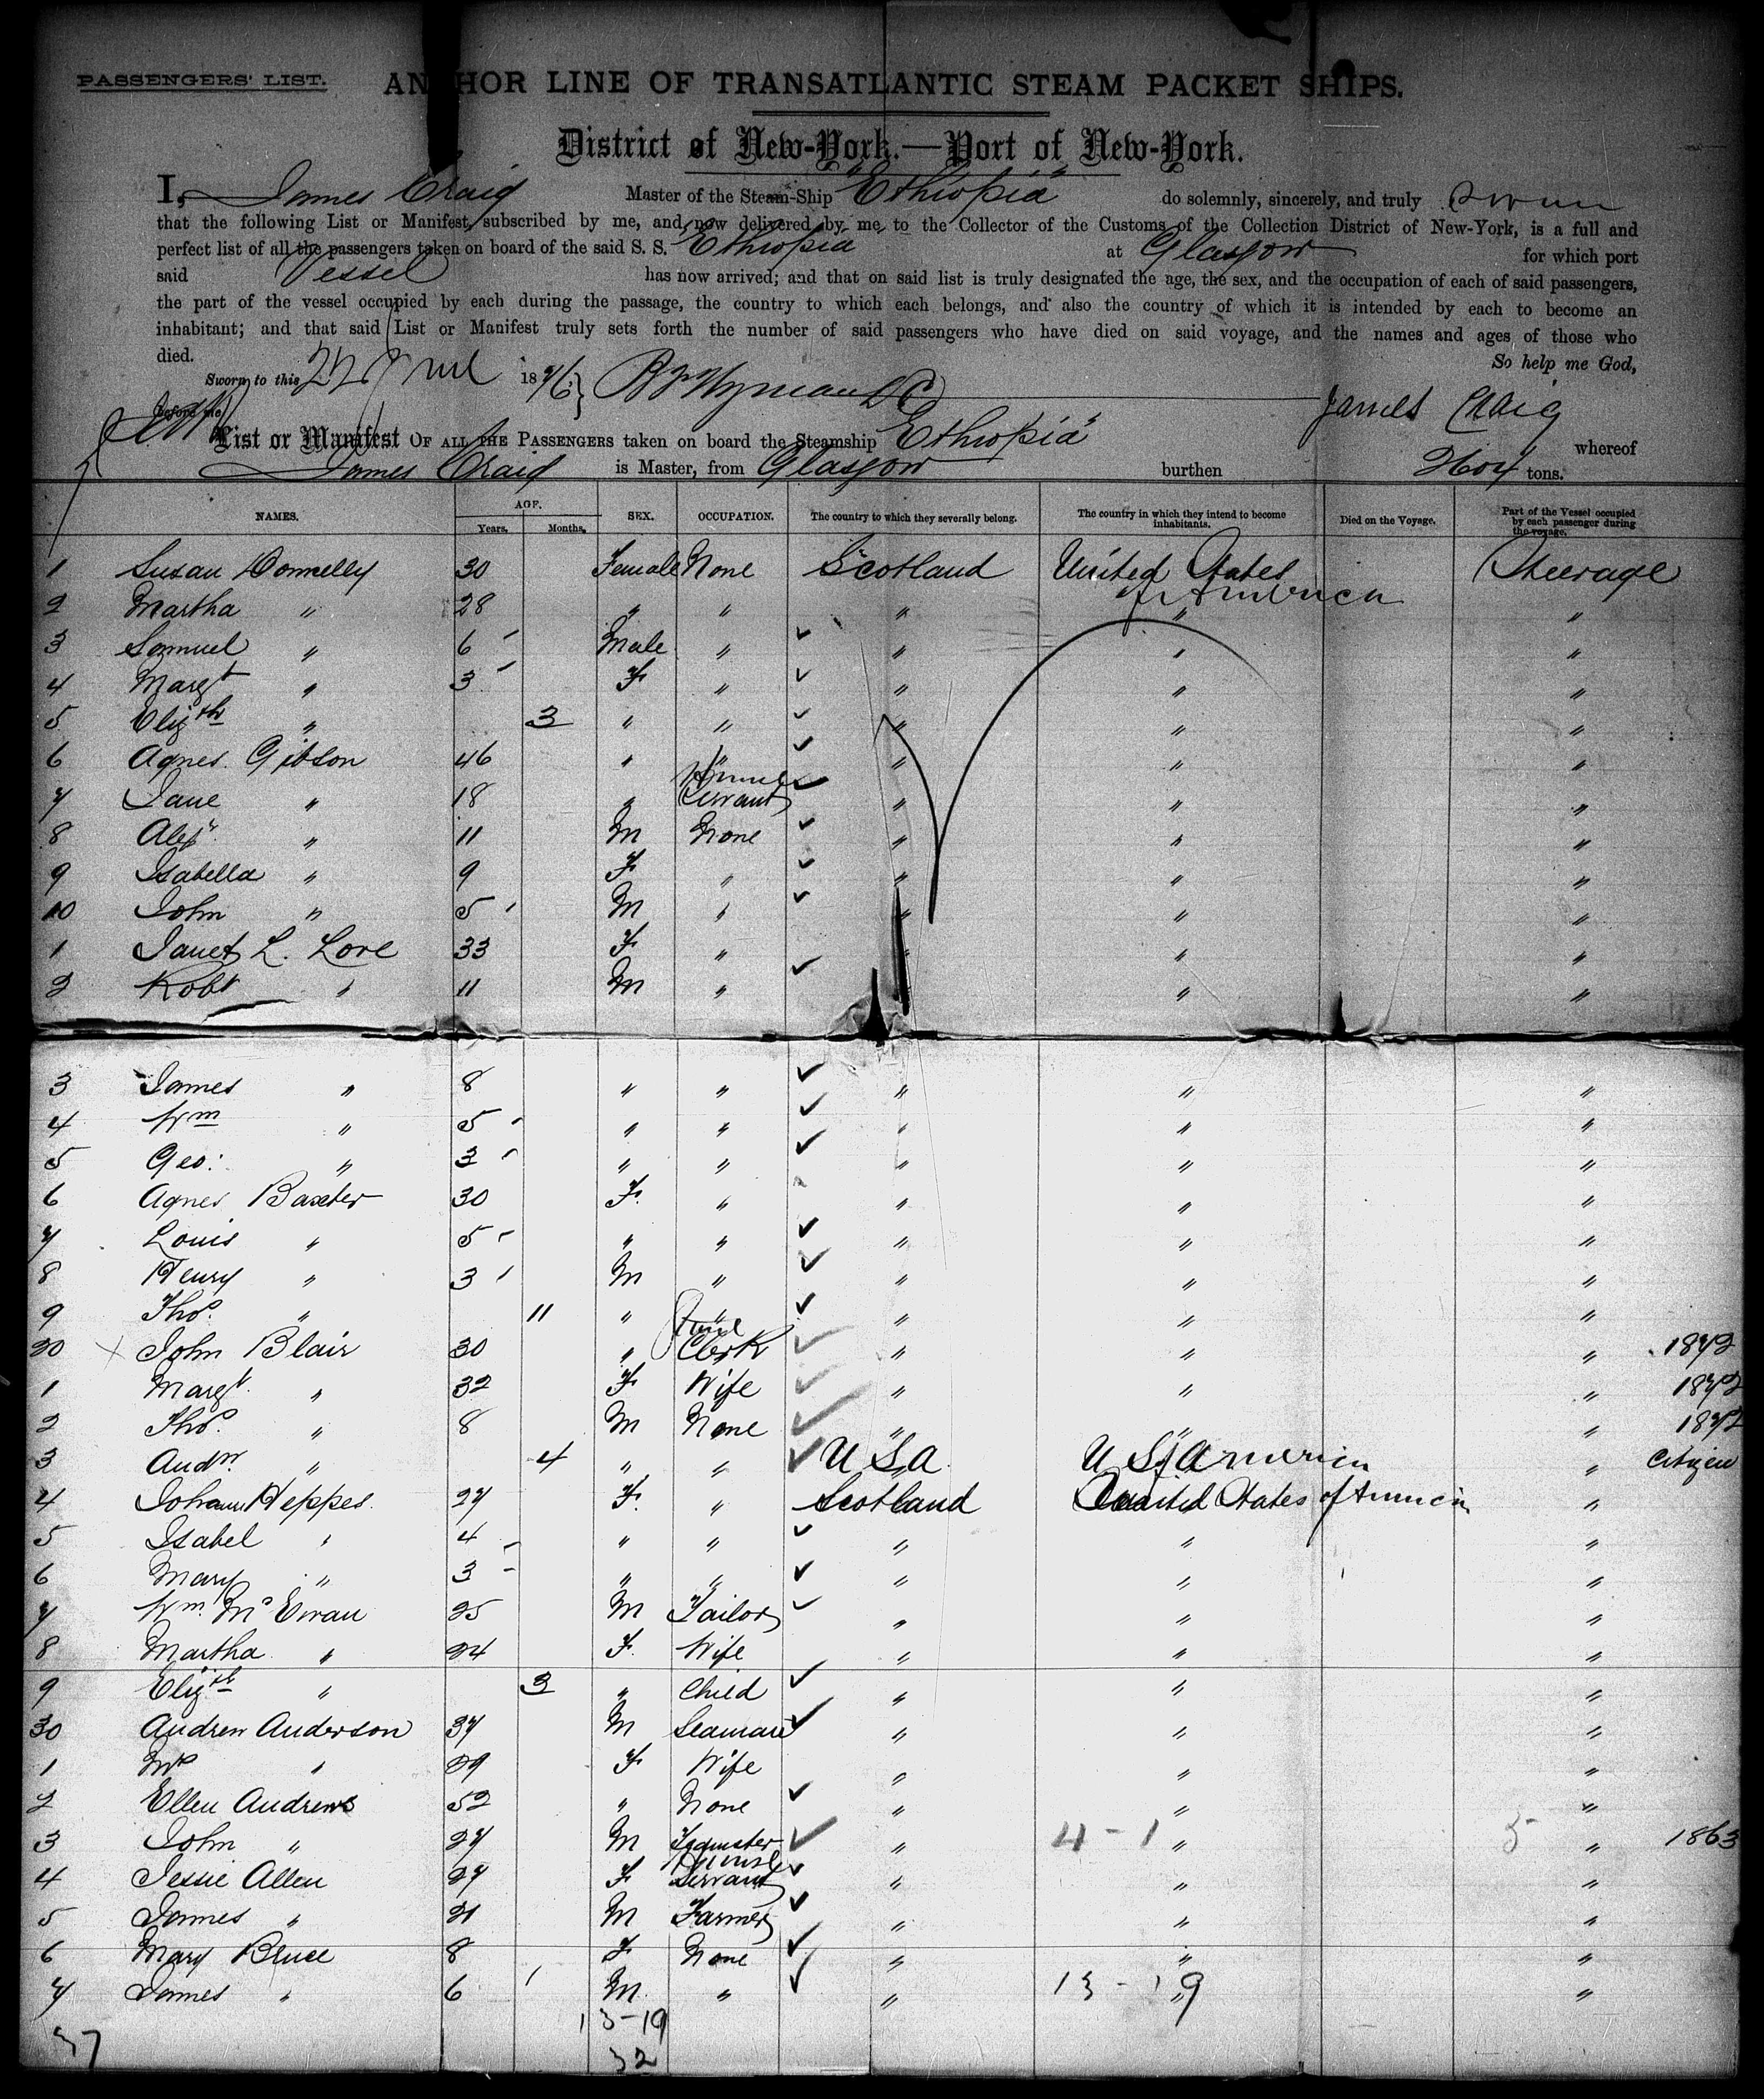 PASSENGERS' LIST. ANCHOR LINE OF TRANSATLANTIC STEAM PACKET SHIPS.
District of New-York.—Port of New-York.
I, James Craig Master of the Steam-Ship "Ethiopia" do solemnly, sincerely, and truly swear
that the following List or Manifest, subscribed by me, and now delivered by me to the Collector of the Customs of the Collection District of New-York, is a full and
perfect list of all the passengers taken on board of the said S. S. Ethiopia at Glasgow for which port
said Vessel has now arrived; and that on said list is truly designated the age, the sex, and the occupation of each of said passengers,
the part of the vessel occupied by each during the passage, the country to which each belongs, and also the country of which it is intended by each to become an
inhabitant; and that said List or Manifest truly sets forth the number of said passengers who have died on said voyage, and the names and ages of those who
died. So help me God,
Sworn to this 22 1876 } B F Wyman D C
before me James Craig
List or Manifest OF ALL THE PASSENGERS taken on board the Steamship Ethiopia" whereof
James Craig is Master, from Glasgow burthen tons.
NAMES. AGE. Years. Months. SEX. OCCUPATION. The country to which they severally belong. The country in which they intend to become inhabitants. Died on the Voyage. Part of the Vessel occupied by each passenger during the voyage.
1 Susan Connelly 30 Female None Scotland United States of America Steerage
2 Martha " 28 " " " " "
3 Samuel " 6 Male " " " "
4 Margt " 3 F " " " "
5 Elizth " 3 " " " " "
6 Agnes Gibson 46 " " " " "
7 Jane " 18 " Servant " " "
8 Alexr " 11 M None " " "
9 Isabella " 9 F " " " "
10 John " 5 M " " " "
1 Janet L. Love 33 F " " " "
2 Robt " 11 M " " " "
3 James " 8 " " " " "
4 Wm " 5 " " " " "
5 Geo: " 3 " " " " "
6 Agnes Baxter 30 F. " " " "
7 Louis " 5 " " " " "
8 Henry " 3 M " " " "
9 Thos. " 11 " " " " "
20 John Blair 30 " Clerk " " " 1872
1 Margt. " 32 F Wife " " " 1872
2 Thos. " 8 M None " " " 1872
3 Andw. " 4 " " U S A U S of America " Citizen
4 Johann Heppes. 27 F. " Scotland United States of America "
5 Isabel " 4 " " " " "
6 Mary " 3 " " " " "
7 Wm. McEwan 25 M Tailor " " "
8 Martha " 24 F. Wife " " "
9 Elizth " 3 " Child " " "
30 Andrew Anderson 37 M Seaman " " "
1 Mrs " 29 F Wife " " "
2 Ellen Andrews 52 " None " " "
3 John " 27 M Teamster " 4-1 " 5 " 1863
4 Jessie Allen 27 F Servant " " "
5 James " 21 M Farmer " " "
6 Mary Bruce 8 F None " " "
7 James " 6 M. " " 13-19 " "
13-19
37 32